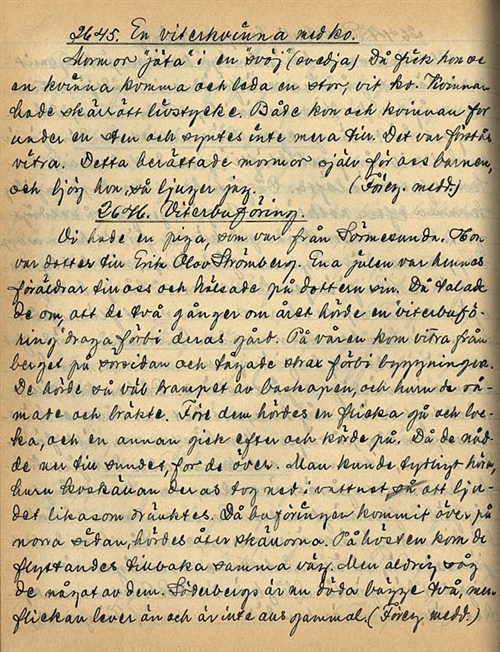 2645. En viterkvinna med ko.
Mormor "jäta" i en "svöj" (svedja) Då fick hon se
en kvinna komma och leda en stor, vit ko. Kvinnan
hade skärrött livstycke. Både kon och kvinnan for
under en sten och syntes inte mera till. Det var förstås
vitra. Detta berättade mormor själv för oss barnen,
och ljög hon, så ljuger jag. (Föreg. medd.)
2646. Viterbuföring.
Vi hade en piga, som var från Sörmesunda. Hon
var dotter till Erik Olov Strömberg. Ena julen var hennes
föräldrar till oss och hälsade på dottern sin. Då talade
de om, att de två gånger om året hörde en "viterbufö-
ring" draga förbi deras gård. På våren kom vitra från
berget på sorsidan och tågade strax förbi byggningen.
De hörde så väl trampet av boskapen, och huru de rå-
made och bräkte. Före dem hördes en flicka gå och loc-
ka, och en annan gick efter och körde på. Då de nåd-
de ner till sundet, for de över. Man kunde tydligt höra,
huru koskällan deras tog ned i vattnet så att lju-
det likasom dränktes. Då buföringen kommit över på
norra sidan, hördes åter skällorna. På hösten kom de
flyttandes tillbaka samma väg. Men aldrig såg
de något av dem. Söderbergs är nu döda bägge två, men
flickan lever än och är inte alls gammal. (Föreg. medd.)